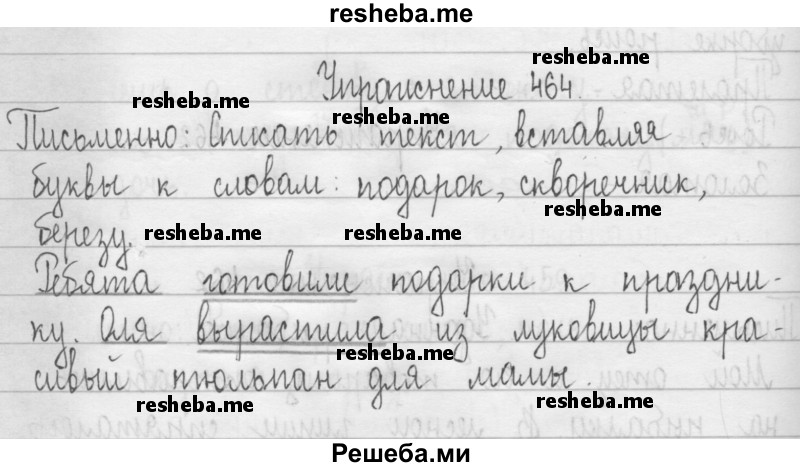 resheba.me
Упражнение 464.
resheba.me
resheba.me
Письменно: Списать текст, вставляя
буквы к словам: подарок, скворечник,
resheba.me
березу.
resheba.me
resheba.me
Ребята готовили подарки к праздни-
ку. Оля вырастила из луковицы кра-
resheba.me
сивый тюльпан для мамы.
resheba.me
resheba.me
Решеба.ми